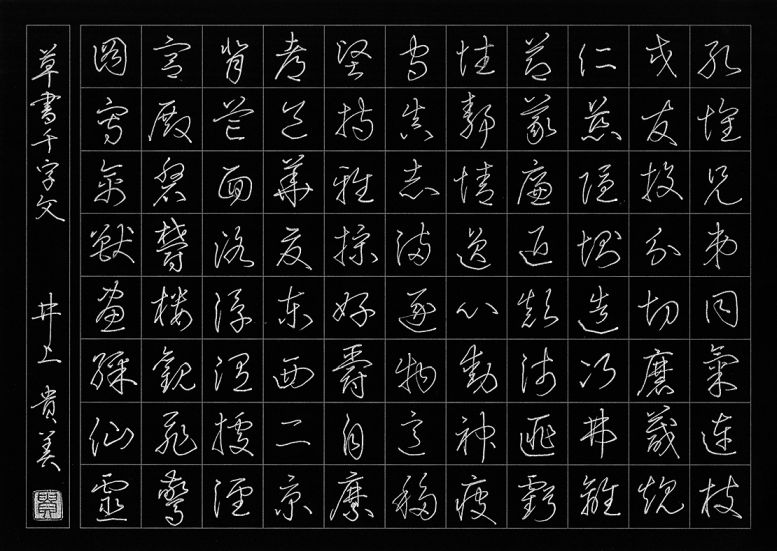 孔懷兄弟同氣連枝
交友投分切磨箴規
仁慈隱惻造次弗離
節義廉退顛沛匪虧
性靜情逸心動神疲
守真志滿逐物意移
堅持雅操好爵自縻
都邑華夏東西二京
背芒面洛浮渭據涇
宮殿盤鬱樓觀飛驚
圖寫禽獸畫綵仙靈
草書千字文 井上 貴美